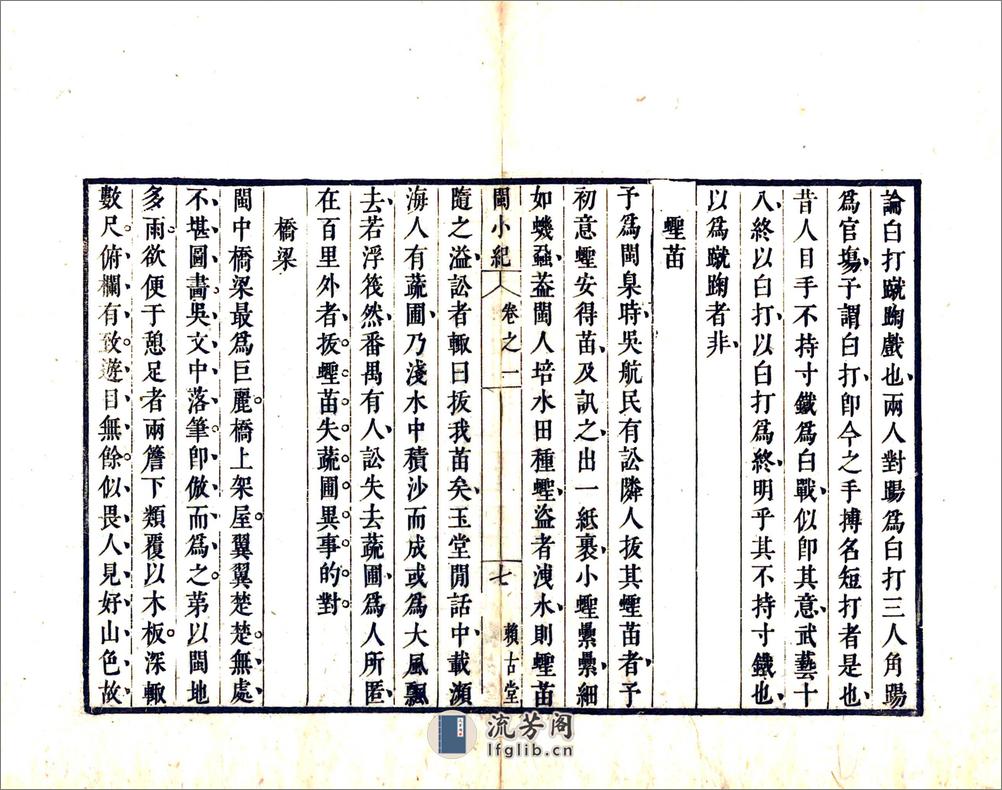 論白打蹴踘戲也兩人對踢爲白打三人角踢
爲官塲予謂白打卽今之手搏名短打者是也
昔人目手不持寸鐵爲白戰似卽其意武藝十
八終以白打以白打爲終明乎其不持寸鐵也
以爲蹴踘者非
蟶苗
予爲閩臬時吳航民有訟隣人拔其蟶苗者予
初意蟶安得苗及訊之出一紙裹小蟶纍纍細
如蟣蝨葢閩人培水田種蟶盜者洩水則蟶苗
閩小紀
卷之一
七
賴古堂
隨之溢訟者輒曰拔我苗矣玉堂閒話中載瀕
海人有蔬圃乃淺水中積沙而成或爲大風飄
去若浮筏然番禺有人訟失去蔬圃爲人所匿
在百里外者拔蟶苗失蔬圃異事的對
橋梁
閩中橋梁最爲巨麗橋上架屋翼翼楚楚無處
不堪圖畵吳文中落筆卽倣而爲之第以閩地
多雨欲便于憩足者兩簷下類覆以木板深輒
數尺俯欄有致遊目無餘似畏人見好山色故
流芳阁
lfglib.cn